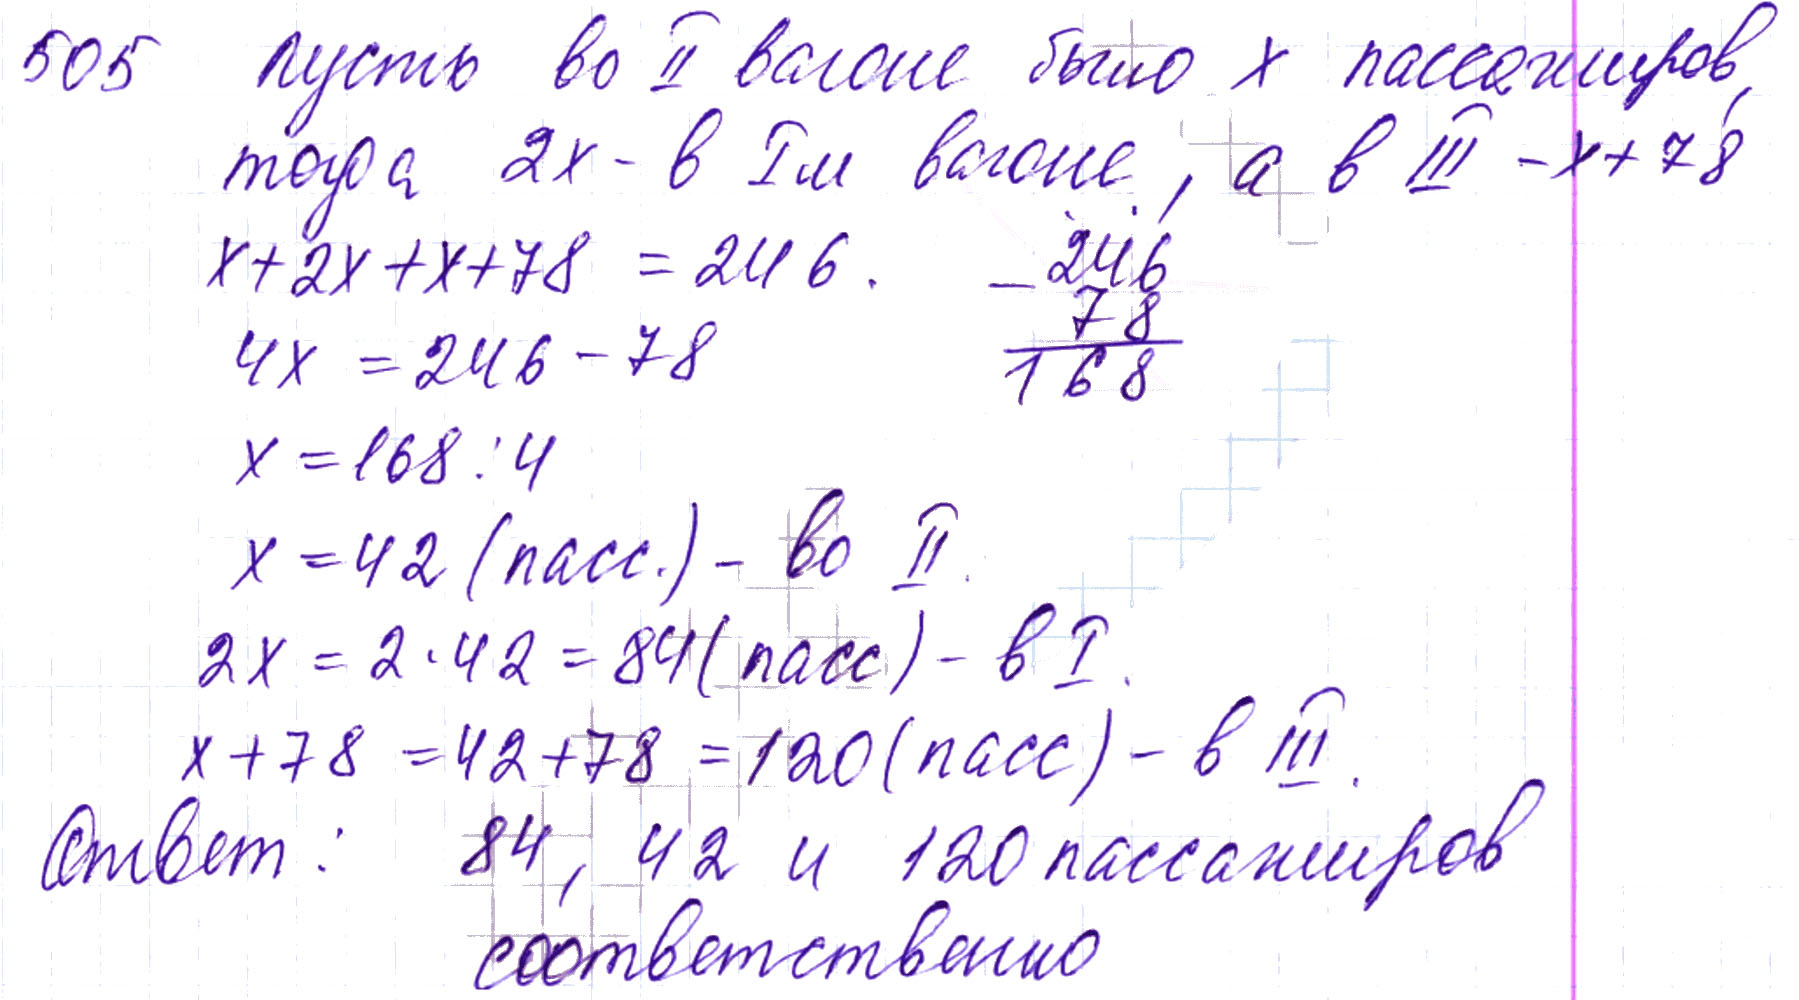 505 Пусть во II вагоне было x пассажиров,
тогда 2x - в Iм вагоне, а в III - x + 78
x + 2x + x + 78 = 246.
4x = 246 - 78
246
- 78
168
x = 168 : 4
x = 42 (пасс.) - во II.
2x = 2 · 42 = 84 (пасс) - в I.
x + 78 = 42 + 78 = 120 (пасс) - в III.
Ответ: 84, 42 и 120 пассажиров
соответственно